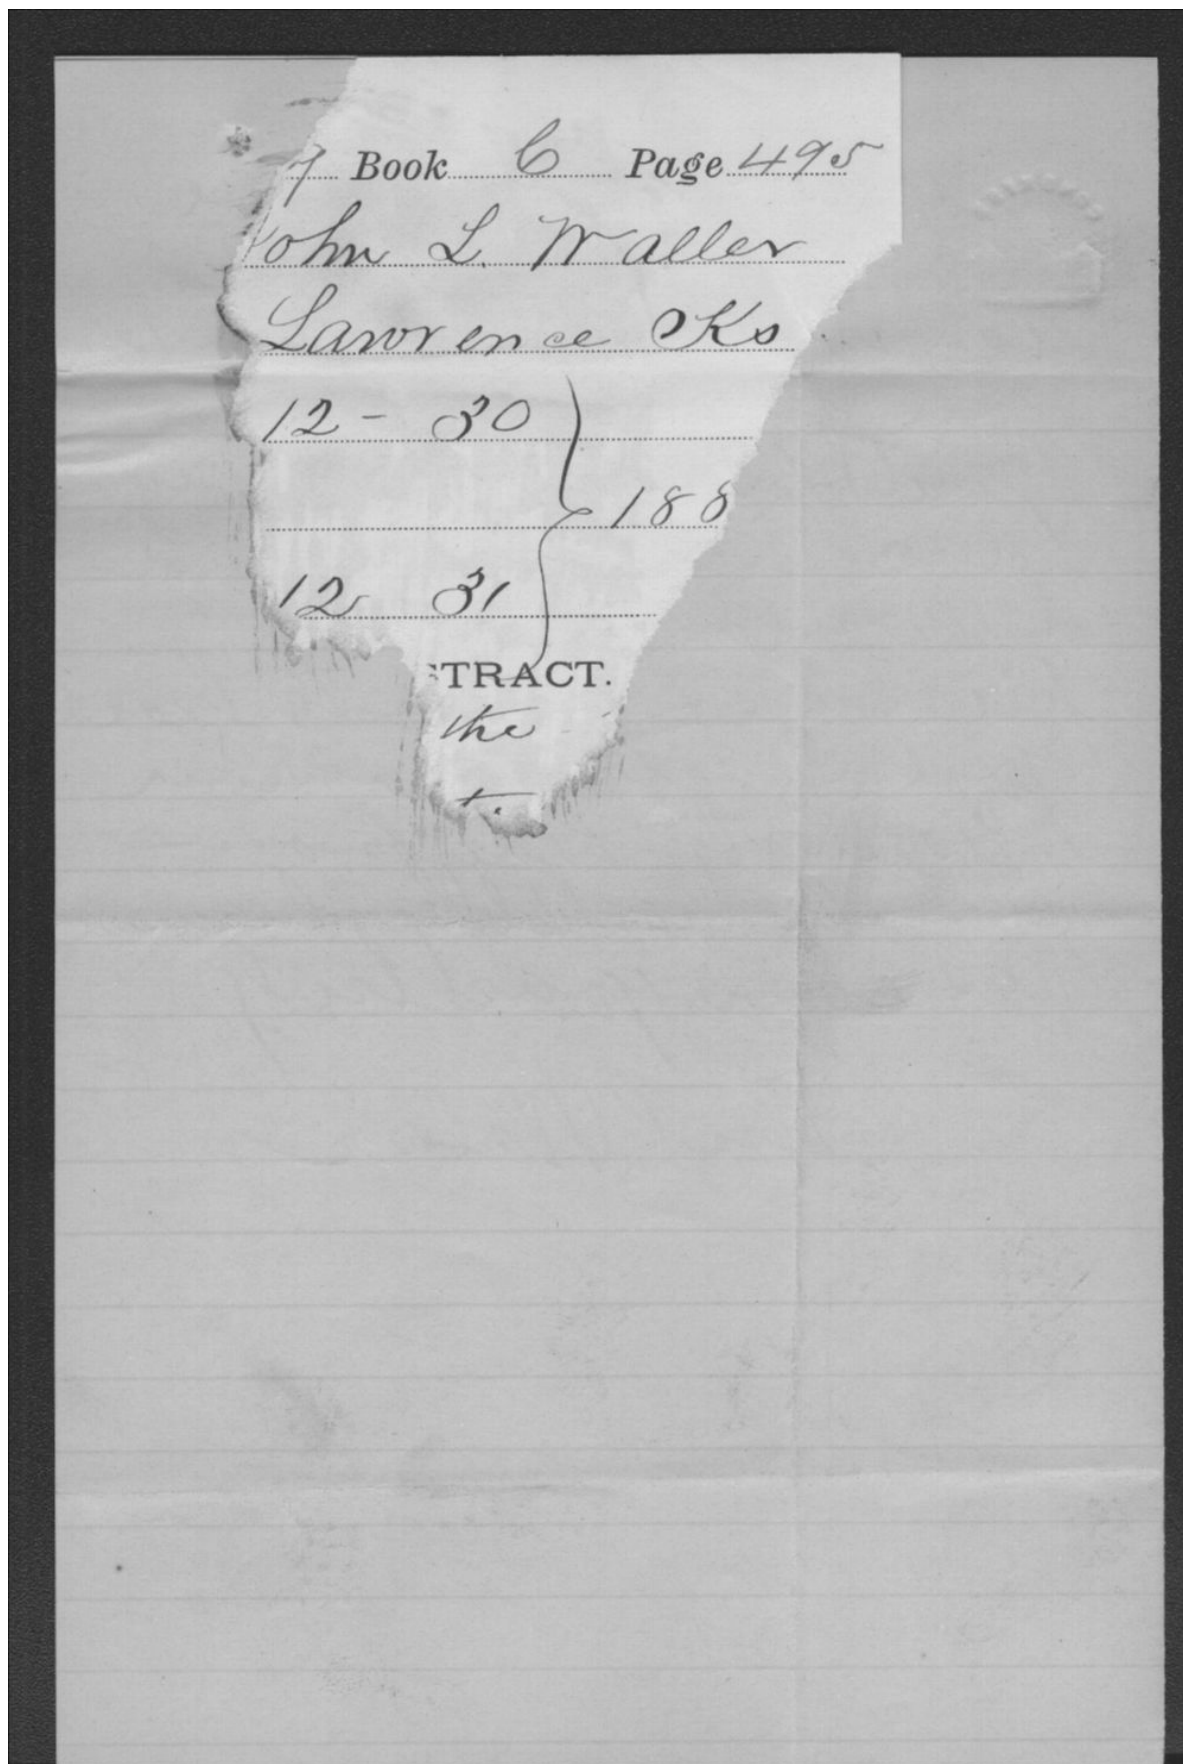 7 Book C Page 495
John L. Waller
Lawrence Ks
12 - 30
188
12 31
STRACT.
the
t.